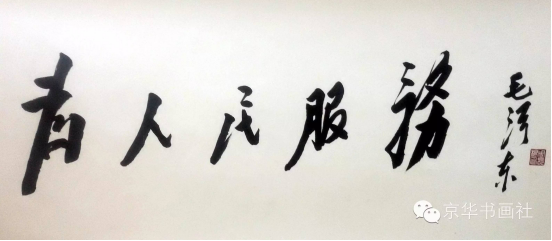 为人民服務
毛泽东
京华书画社